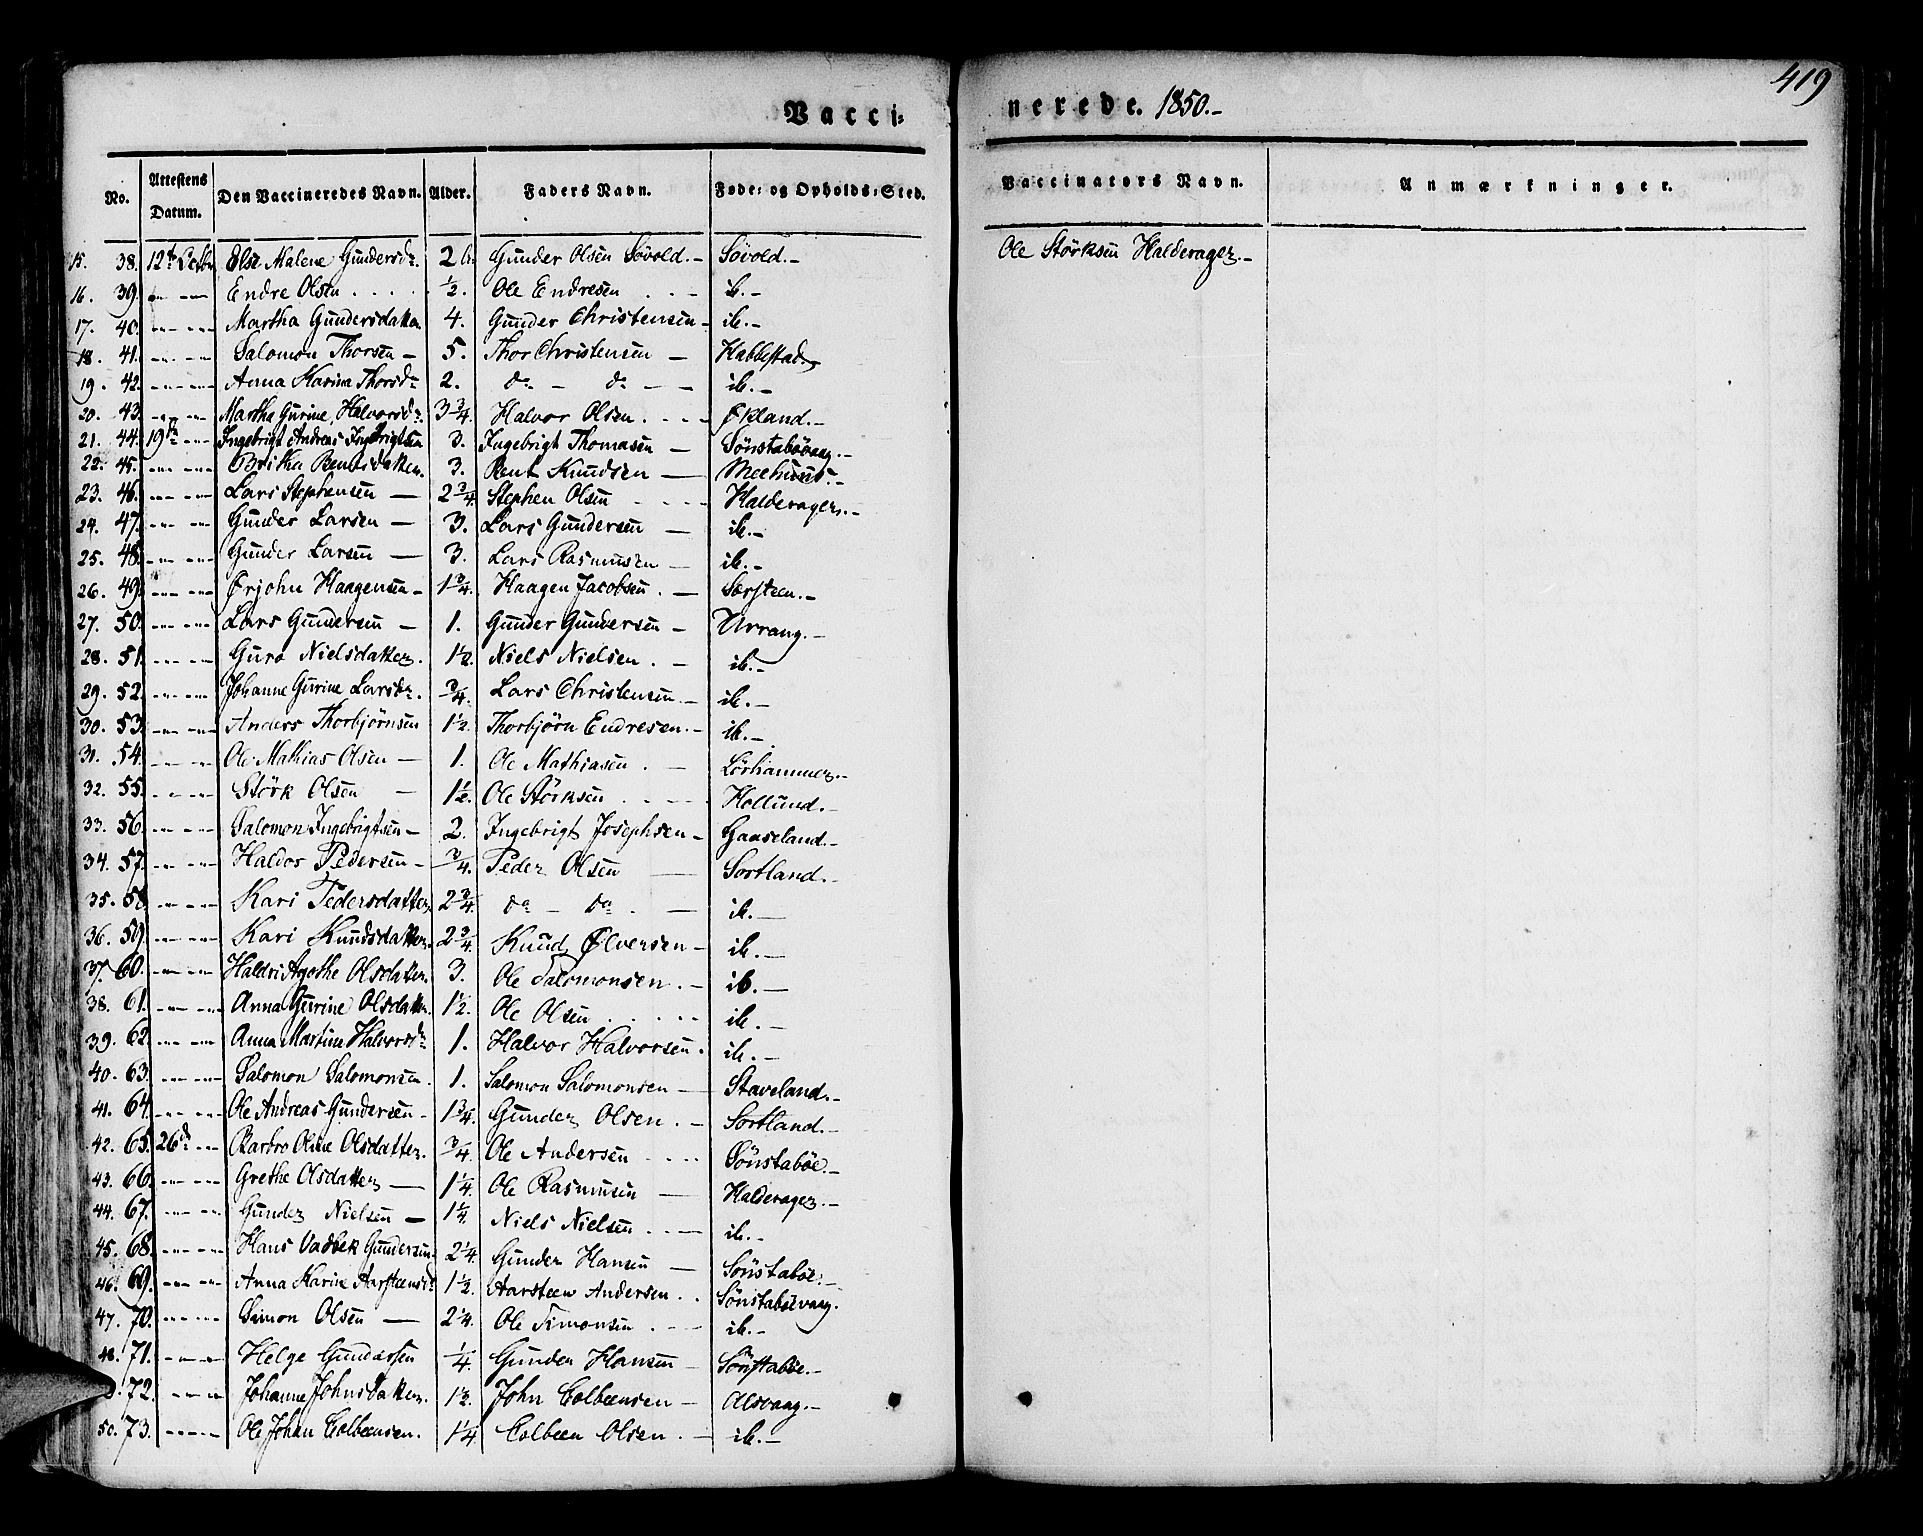 419
Vacci= nerede. 1850.-
No. Attestens Datum. Den Vaccineredes Navn. Alder. Faders Navn. Føde- og Opholds-Sted. Vaccinators Navn. Anmærkninger.
15. 38. 12te Octbr Else Malene Gundersdr. 2 Gunder Olsen Søvold.- Søvold.- Ole Størksen Halderager.-
16. 39. Endre Olsen 1/2. Ole Endresen ib.-
17. 40. Martha Gundersdatter 4. Gunder Christensen- ib.-
18. 41. Salomon Thorsen - 5. Thor Christensen - Habbestad.
19. 42. Anna Karina Thorsdr 2. do - do - ib.-
20. 43. Martha Gurine Halvorsdr. 3 3/4. Halvor Olsen Økland.-
21. 44. 19de Ingebrigt Andreas Ingebrigtsen 3. Ingebrigt Thomasen - Sønstabøvaag.-
22. 45. Britha Bentsdatter. 3. Bent Knudsen - Meehuus.-
23. 46. Lars Stephensen - 2 3/4. Stephen Olsen Halderager.-
24. 47. Gunder Larsen - 3. Lars Gundersen - ib.-
25. 48. Gunder Larsen - 3. Lars Rasmussen - ib.-
26. 49. Ørjohn Haagensen - 1 3/4. Haagen Jacobsen. - Særsteen.-
27. 50. Lars Gundersen - 1. Gunder Gundersen - Urrang.-
28. 51. Guro Nielsdatter. 1 1/2. Niels Nielsen. - ib.-
29. 52. Johanne Gurine Larsdr. 3/4. Lars Christensen.- ib.-
30. 53. Anders Thorbjørnsen 1 1/2. Thorbjørn Endresen.- ib.-
31. 54. Ole Mathias Olsen - 1. Ole Mathiasen. - Lørhammer.-
32. 55. Størk Olsen - 1 1/2. Ole Størksen Hollund.-
33. 56. Salomon Ingebrigtsen - 2. Ingebrigt Josephsen - Gaaseland.-
34. 57. Haldor Pedersen - 3/4. Peder Olsen - Sortland.-
35. 58. Kari Pedersdatter. 2 3/4. do - do. - ib.-
36. 59. Kari Knudsdatter. 2 3/4. Knud Ølversen - ib.-
37. 60. Haldri Agothe Olsdatter. 3. Ole Salomonsen.- ib.-
38. 61. Anna Gurine Olsdatter. 1 1/2. Ole Olsen ib.-
39. 62. Anna Martine Halvorsdr 1. Halvor Halvorsen. ib.-
40. 63. Salomon Salomonsen. 1. Salomon Salomonsen - Staveland.-
41. 64. Ole Andreas Gundersen - 1 3/4. Gunder Olsen. - Sortland.-
42. 65. 26de Barbro Oline Olsdatter. 3/4. Ole Andersen Sønstabøe.-
43. 66. Grethe Olsdatter - 1 1/4. Ole Rasmusen - Halderager.-
44. 67. Gunder Nielsen - 1 1/4. Niels Nielsen. ib.-
45. 68. Hans Vadbek Gundersen. 2 1/4. Gunder Hansen - Sønstabøe.-
46. 69. Anna Marine Aarsteensdr 1 1/2. Aarsteen Andersen. Sønstabøevaag.
47. 70. Simon Olsen - 2 1/4. Ole Simonsen. - ib.-
48. 71. Helge Gundersen 1/4. Gunder Hansen - Sønstabøe.-
72. Johanne Johnsdatter. 1 1/2. John Colbeensen - Alsvaag.-
50. 73. Ole Johan Colbeensen. 1 1/4. Colbeen Olsen. - ib.-